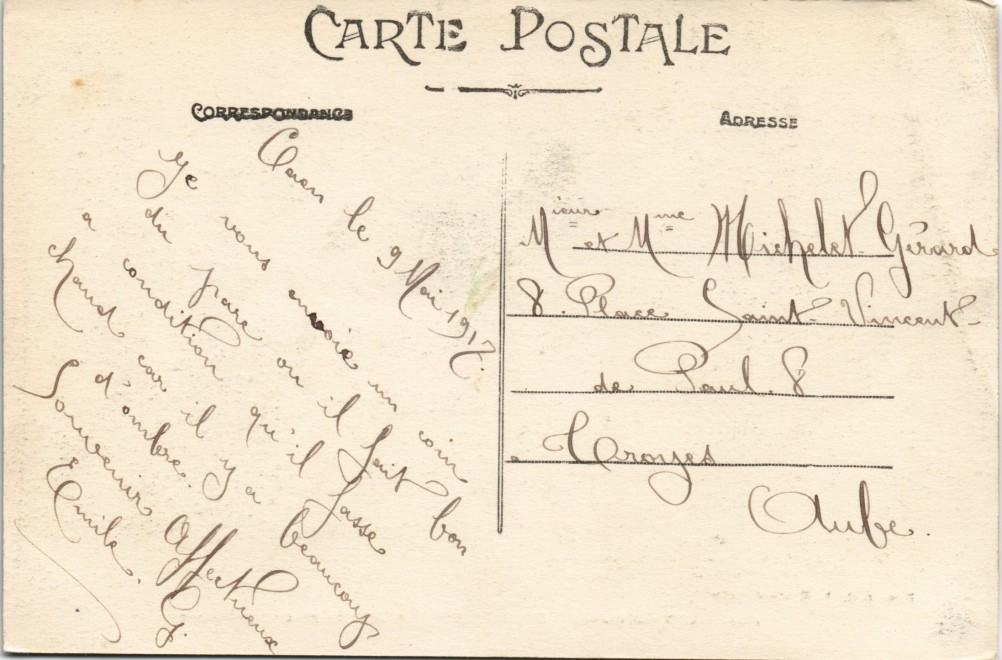 CARTE POSTALE
CORRESPONDANCE
ADRESSE
Caen le 9 Mai 1917.
Je vous envoie un coin
du parc ou il fait bon
a condition qu'il fasse
chaud car il y a beaucoup
d'ombre.
Souvenir Affectueux
Emile. G.
Mieur et Mme Michelet-Gérard
8. Place Saint-Vincent-
de Paul. 8
a Troyes
Aube.